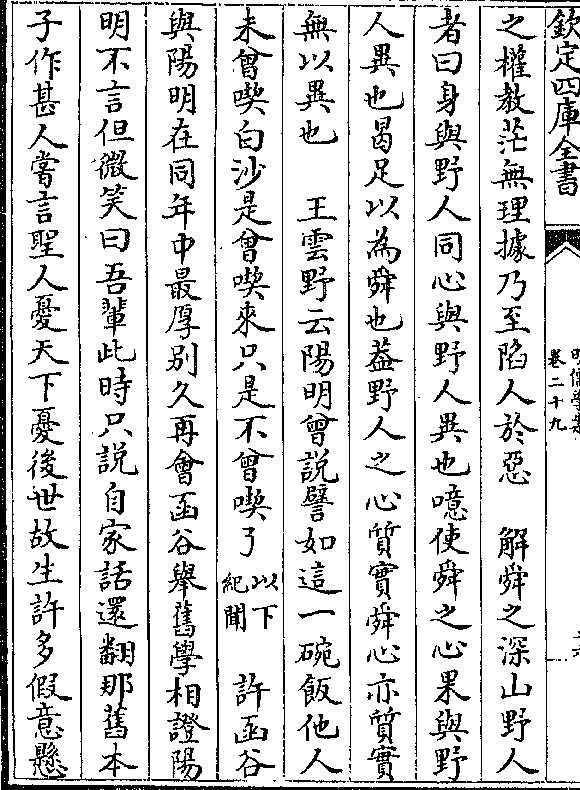 欽定四庫全書
卷二十九
之權教茫無理據乃至陷人於惡　解舜之深山野人
者曰身與野人同心與野人異也噫使舜之心果與野
人異也曷足以為舜也葢野人之心質實舜心亦質實
無以異也　王雲野云陽明曾說譬如這一碗飯他人
未曾喫白沙是曾喫來只是不曾喫了以下紀聞　許函谷
與陽明在同年中最厚別久再會函谷舉舊學相證陽
明不言但微笑曰吾輩此時只說自家話還翻那舊本
子作甚人嘗言聖人憂天下憂後世故生許多假意懸